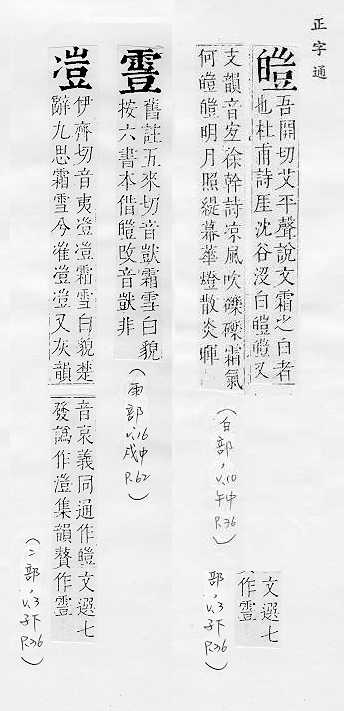 正字通
皚
吾開切艾平聲說文霜雪之白者
也杜甫詩厓沈谷沒白皚皚又
支韻音宐徐幹詩凉風吹礫礫霜氣
何皚皚明月照緹幕華燈散炎輝
(白部，v.10
午中
P.36)
文選七
作𩄡
部，v.3
子下
P.36)
𩄡
舊註五來切音獃霜雪白貌
按六書本借皚改音獃非
(雨部
v.16
戌中
P.62)
凒
伊齊切音夷凒凒霜雪白貌楚
辭九思霜雪兮凗凒又灰韻
音哀義同通作皚文選七
發譌作澄集韻贅作𩄡
(冫部，v.3
子下
P.36)